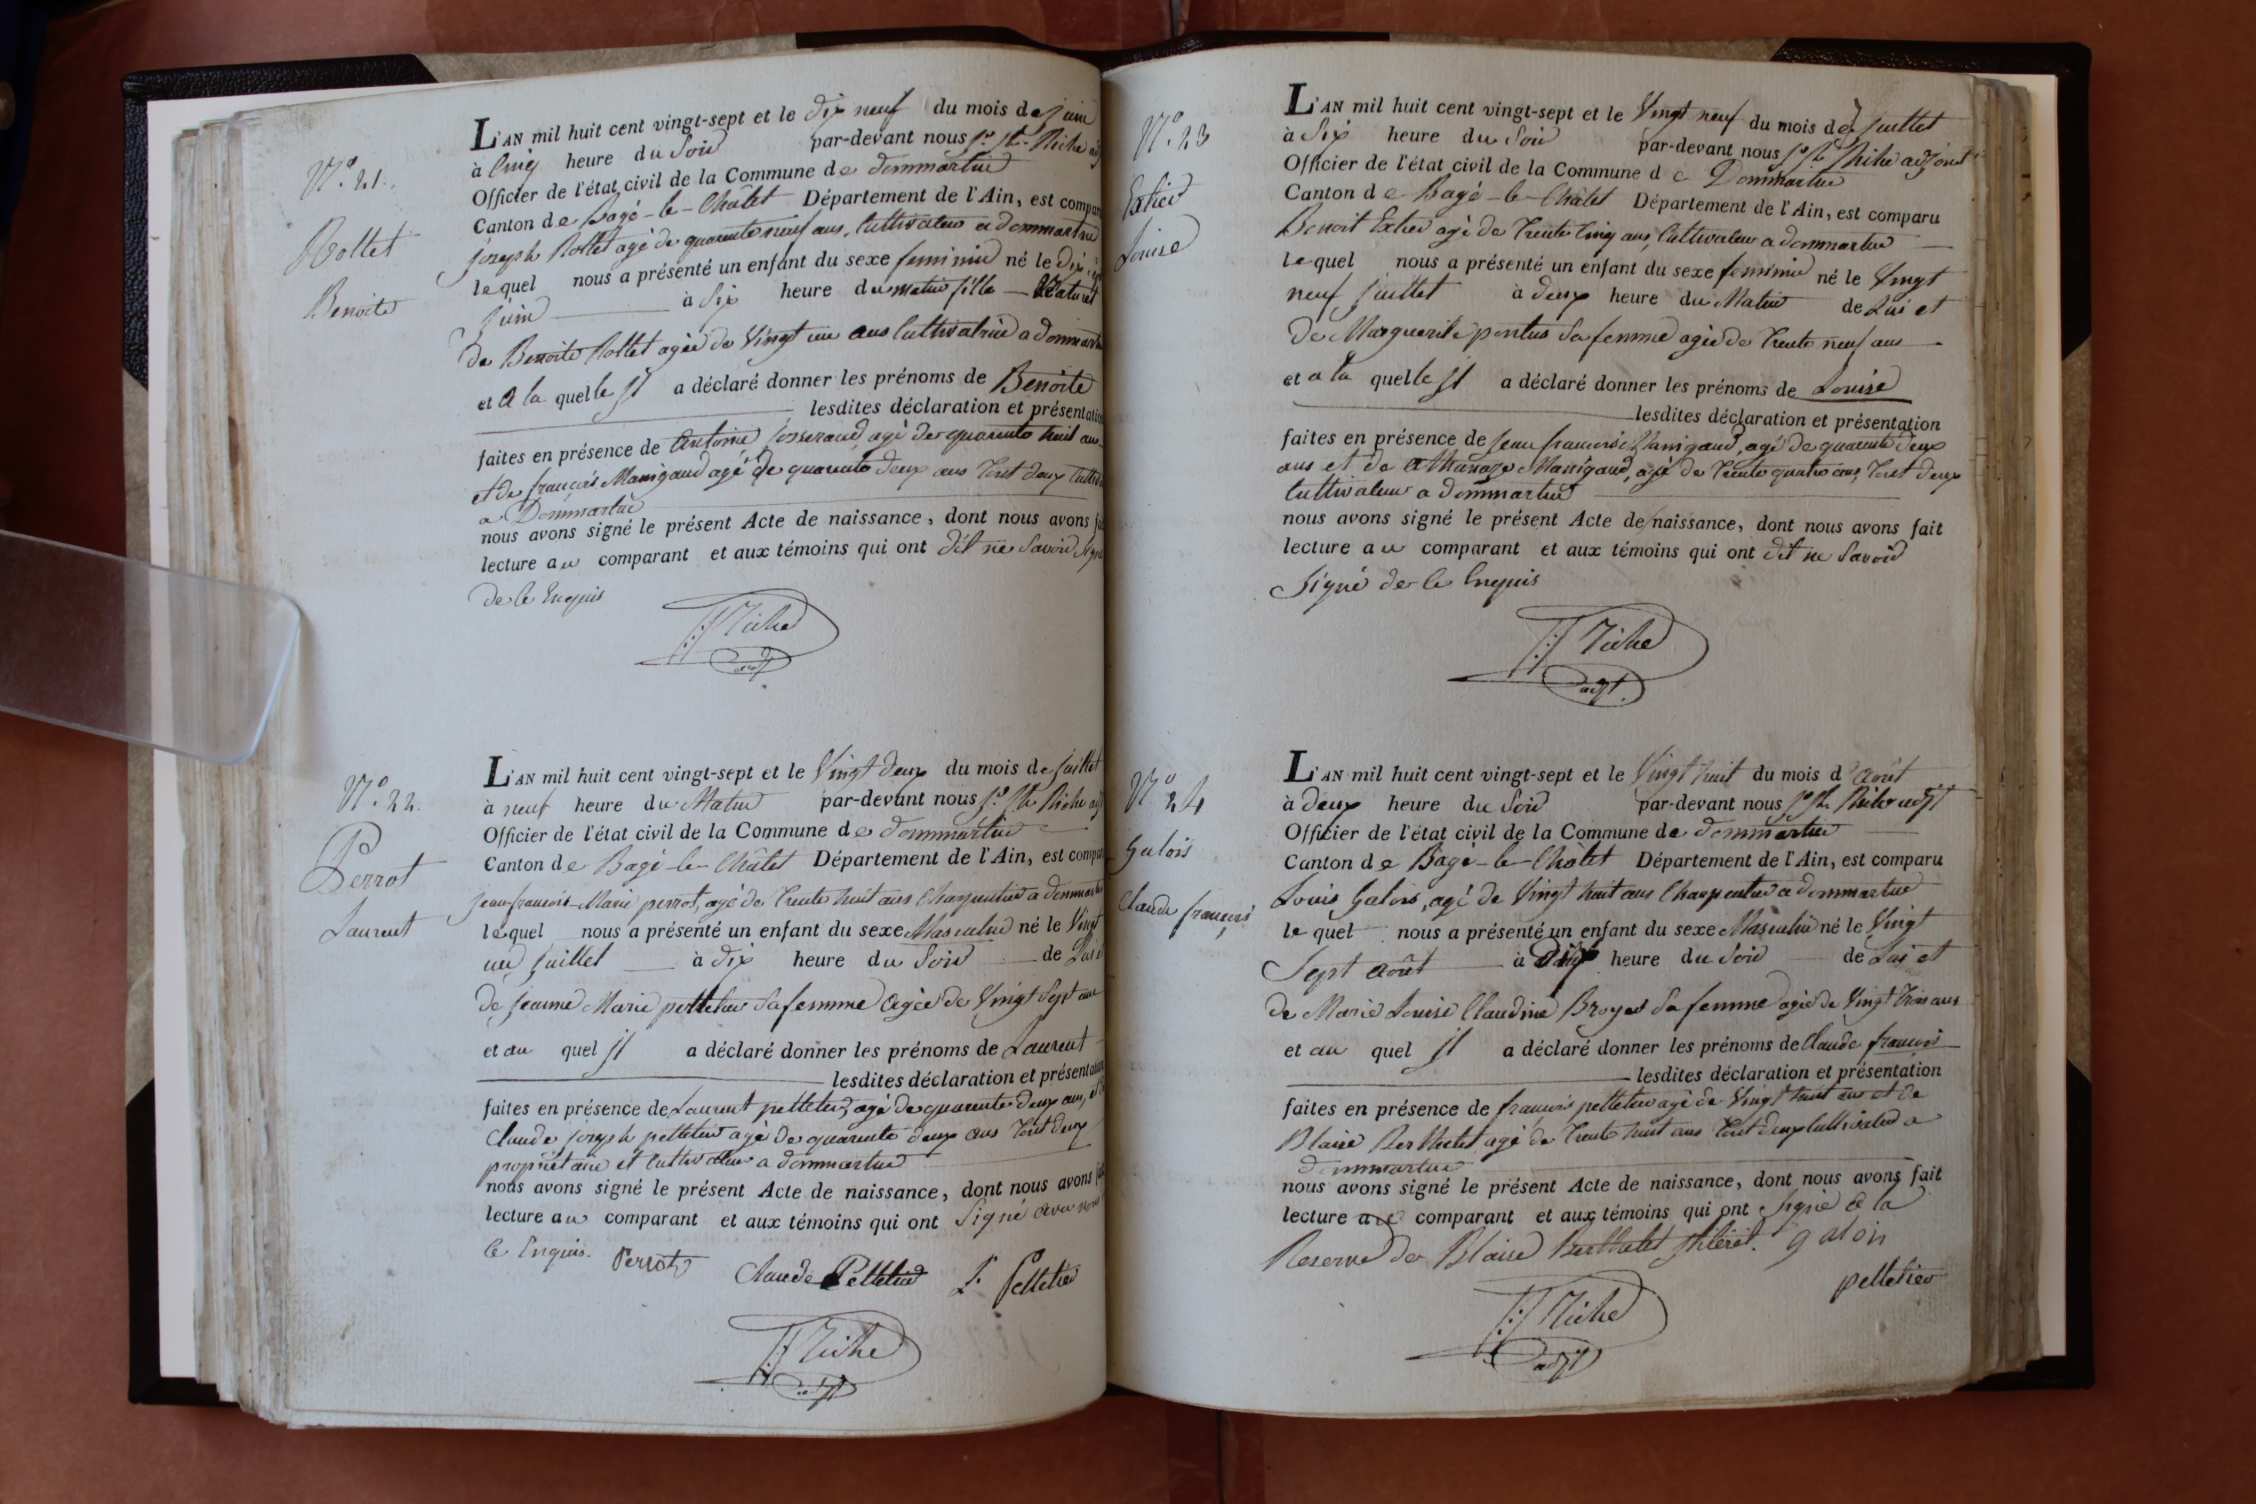 N.° 21.
Rollet
Benoite
L'AN mil huit cent vingt-sept et le dix neuf du mois de juin
à Cinq heure du Soir par-devant nous Riche
Officier de l'état civil de la Commune de dommartin
Canton de Bagé-le-Châtel Département de l'Ain, est compar
joseph Rollet agé de quarante neuf ans, Cultivateur a dommartin
lequel nous a présenté un enfant du sexe feminin né le dix
juin à Six heure du matin fille Naturel
de Benoite Rollet agée de Vingt un ans Cultivatrice a dommartin
et a la quelle Il a déclaré donner les prénoms de Benoite
lesdites déclaration et présentation
faites en présence de Antoine Josserand, agé de quarante huit ans
et de françois Manigaud agé de quarante deux ans Tout deux Cultiv
a Dommartin
nous avons signé le présent Acte de naissance, dont nous avons f
lecture au comparant et aux témoins qui ont dit ne Savoir Signé
de le Enquis
Riche
N.° 22.
Perrot
Laurent
L'AN mil huit cent vingt-sept et le Vingt deux du mois de juillet
à neuf heure du Matin par-devant nous Riche
Officier de l'état civil de la Commune de dommartin
Canton de Bagé-le-Châtel Département de l'Ain, est compar
jean françois Marie perrot, agé de Trente huit ans Charpentier a dommartin
lequel nous a présenté un enfant du sexe Masculin né le Vingt
un juillet à dix heure du Soir de Lui
de jeanne Marie pelletier Sa femme agée de Vingt Sept ans
et au quel Il a déclaré donner les prénoms de Laurent
lesdites déclaration et présentation
faites en présence de Laurent pelletier, agé de quarante deux ans, et
Claude joseph pelletier agé de quarante deux ans Tout deux
proprietaire et Cultivateur a dommartin
nous avons signé le présent Acte de naissance, dont nous avons f
lecture au comparant et aux témoins qui ont Signé avec nous
le Enquis. Perrot Claude Pelletier L. Pelletier
Riche
N.° 23
Extier
Louise
L'AN mil huit cent vingt-sept et le Vingt neuf du mois de juillet
à Six heure du Soir par-devant nous Riche adjoint
Officier de l'état civil de la Commune de Dommartin
Canton de Bagé-le-Châtel Département de l'Ain, est comparu
Benoit Extier agé de Trente Cinq ans, Cultivateur a dommartin
lequel nous a présenté un enfant du sexe feminin né le Vingt
neuf juillet à deux heure du Matin de Lui et
de Marguerite pontus Sa femme agée de Trente neuf ans
et a la quelle Il a déclaré donner les prénoms de Louise
lesdites déclaration et présentation
faites en présence de jean françois Manigaud, agé de quarante deux
ans et de athanaze Manigaud, agé de Trente quatre ans, Tout deux
Cultivateur a dommartin
nous avons signé le présent Acte de naissance, dont nous avons fait
lecture au comparant et aux témoins qui ont dit ne Savoir
Signé de le Enquis
Riche
adjt.
N.° 24
Galois
Claude françois
L'AN mil huit cent vingt-sept et le Vingt huit du mois d'Août
à deux heure du Soir par-devant nous Riche adjt
Officier de l'état civil de la Commune de dommartin
Canton de Bagé-le-Châtel Département de l'Ain, est comparu
Louis Galois, agé de Vingt huit ans Charpentier a dommartin
lequel nous a présenté un enfant du sexe Masculin né le Vingt
Sept Août à heure du Soir de Lui et
de Marie Louise Claudine Broyer Sa femme agée de Vingt Trois ans
et au quel Il a déclaré donner les prénoms de Claude françois
lesdites déclaration et présentation
faites en présence de françois pelletier agé de Vingt huit ans et de
Blaise Berthelet agé de Trente huit ans Tout deux Cultivateur a
dommartin
nous avons signé le présent Acte de naissance, dont nous avons fait
lecture au comparant et aux témoins qui ont Signé a la
Reserve de Blaise Berthelet Ileret. galois
pelletier
Riche
adjt